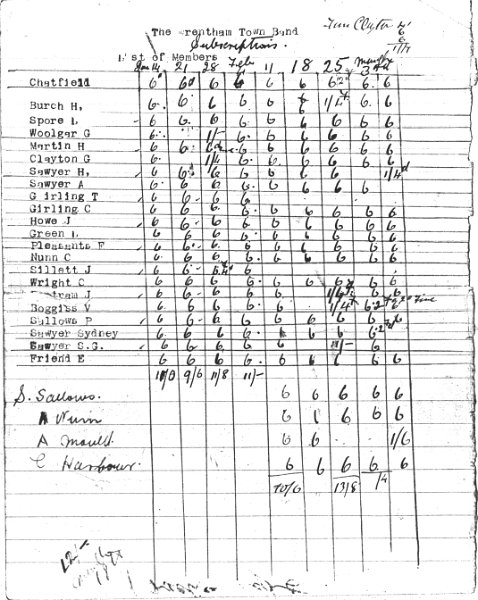 The Wrentham Town Band
Subscriptions.
List of Members
Jan 14 21 28 11 18 25
Chatfield 6 6 6 6 6 6
Burch H, 6 6 6 6 6 6 1/4 6 6
Spore L 6 6 6 6 6 6 6 6 6
Woolgar G 6 1/- 6 6 6 6 6 6
Martin H 6 6 6 6 6 6 6
Clayton G 6 1/4 6 6 6 6 6 6
Sawyer H, 6 6 6 6 6 6 6 1/4d
Sawyer A 6 6 6 6 6 6 6 6
Girling T 6 6 6 6
Girling C 6 6 6 6 6 6 6 6 6
Howe J 6 6 6 6 6 6 6 6 6
Green L 6 6 6 6 6 6 6 6 6
Pleasants F 6 6 6 6 6 6 6 6 6
Nunn C 6 6 6 6 6 6 6 6 6
Sillett J 6 6 6
Wright C 6 6 6 6 6 6 6 6 6
J 6 6 6 6 6 6
Boggiss V 6 6 6 6 1/4 6 Fine
Sallows P 6 6 6 6 6 6 6 6 6
Sawyer Sydney 6 6 6 6 6 6 6
Sawyer S.G. 6 6 6 6 6 11/- 6
Friend E 6 6 6 6 6 6 6 6 6
9/6 11/8 11/-
S. Sallows. 6 6 6 6 6
Nunn 6 6 6 6
A Mould. 6 6 1/6
C Harbour. 6 6 6 6 6
10/6 13/8 1/4